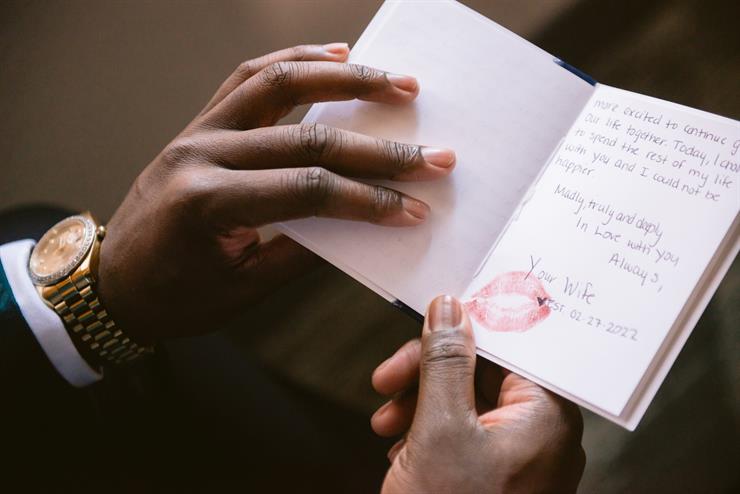 more excited to continue g
our life together. Today, I cho
to spend the rest of my life
with you and I could not be
happier.
Madly, truly and deeply
In Love with you
Always,
Your Wife
EST 02-27-2022